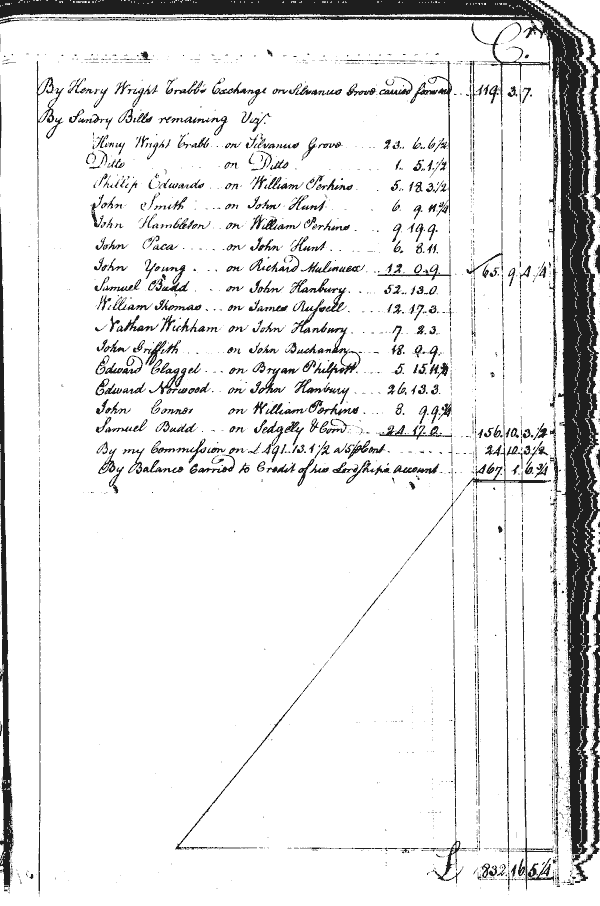 C.r
By Henry Wright Crabb's Exchange on Silvanus Grove carried forward 119. 3. 7.
By Sundry Bills remaining Viz.
Henry Wright Crabb on Silvanus Grove 23. 6. 6 1/2
Ditto on Ditto 1. 5. 1 1/2
Phillip Edwards on William Perkins 5. 18. 3 1/2
John Smith on John Hunt 6. 9. 11 3/4
John Hambleton on William Perkins 9. 19. 9.
John Paca on John Hunt 6. 8. 11.
John Young on Richard Mulinuex 12. 0. 9. 65. 9. 4 1/4
Samuel Budd on John Hanbury 52. 13. 0
William Thomas on James Russell 12. 17. 3
Nathan Wickham on John Hanbury 7. 2. 3.
John Griffith on John Buchanan 18. 0. 9.
Edward Claggel on Bryan Philpott 5. 15. 11 3/4
Edward Norwood on John Hanbury 26. 13. 3.
John Connor on William Perkins 8. 9. 9 3/4
Samuel Budd on Sedgelly & Comd 24. 17. 0. 156. 10. 3 1/2
By my Commission on £ 491. 13. 1 1/2 a 5 p Cent 24. 10. 3 1/2
By Balance Carried to Credit of his Lordship's Account 467. 1. 6 3/4
£ 832. 16. 5 1/4